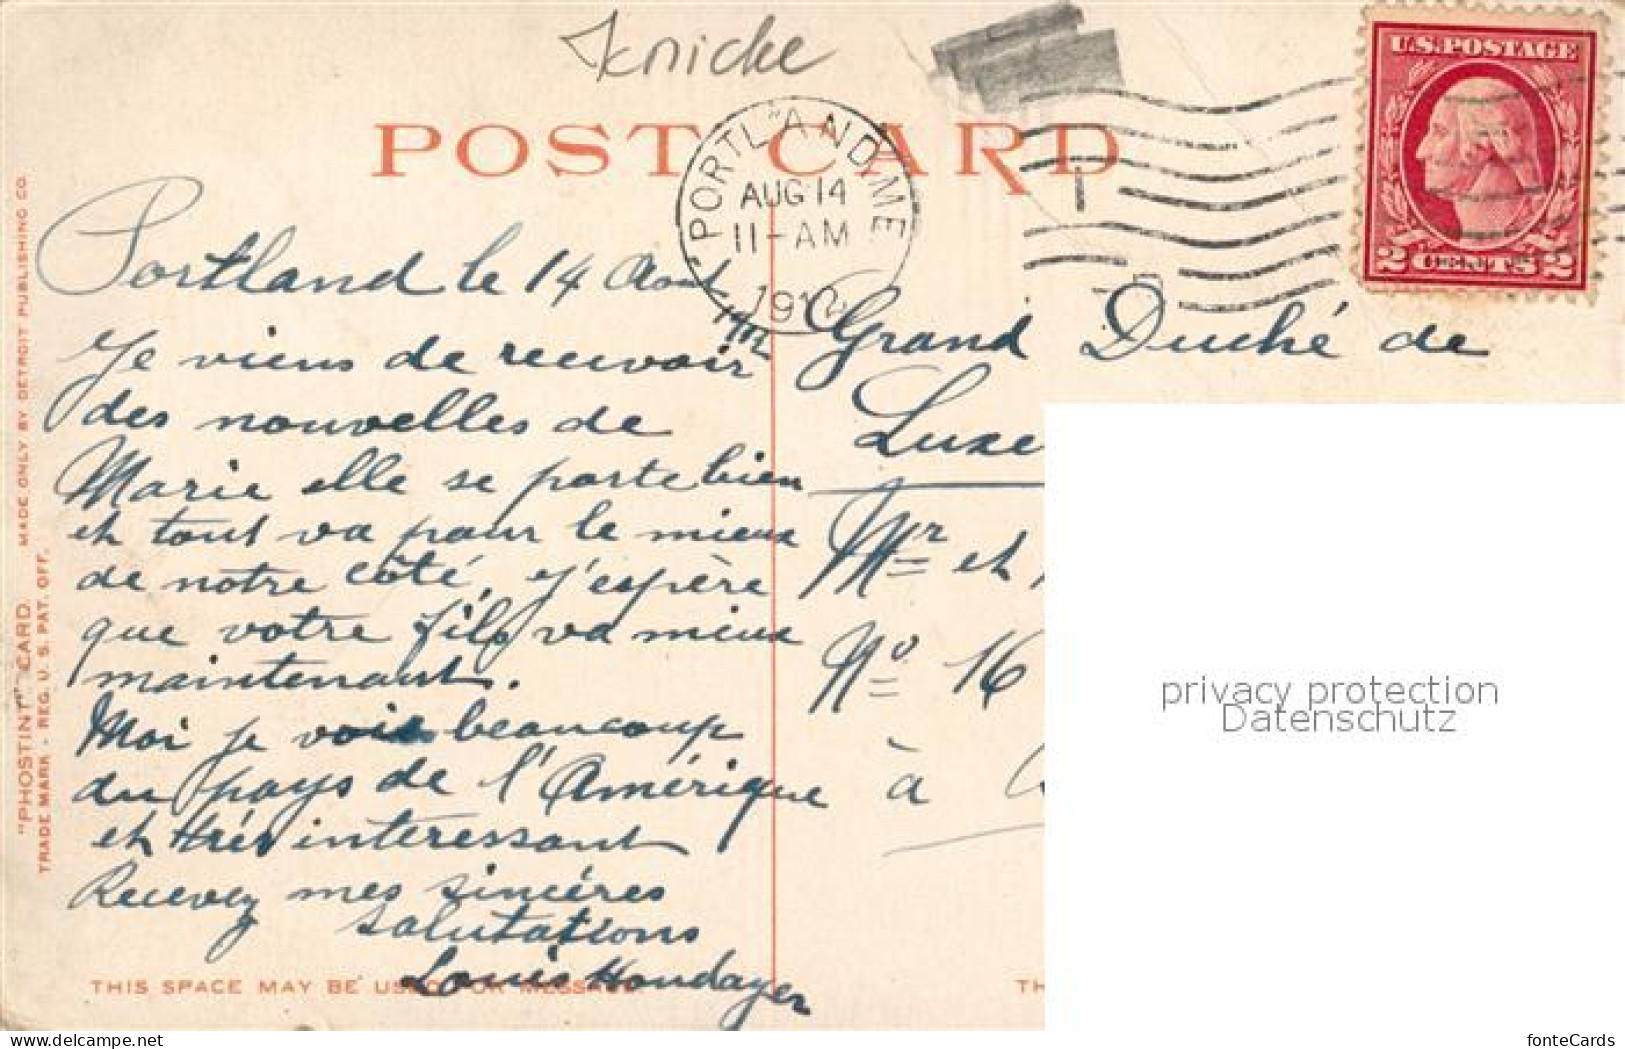 Knicke
POST CARD
PORTLAND, ME
AUG 14
11-AM
1912
U.S. POSTAGE
2 CENTS 2
Portland le 14 Aout 1912
Je viens de recevoir
des nouvelles de
Marie elle se porte bien
et tout va pour le mieux
de notre côté, j'espère
que votre fils va mieux
maintenant.
Moi je vois beaucoup
du pays de l'Amérique
et très interessant
Recevez mes sincères
salutations
Louis
Grand Duché de
Luxe
Mr et
No 16
à
THIS SPACE MAY BE USED FOR MESSAGE
TH
"PHOSTINT" CARD. MADE ONLY BY DETROIT PUBLISHING CO.
TRADE MARK - REG. U. S. PAT. OFF.
privacy protection
Datenschutz
www.delcampe.net
fonteCards